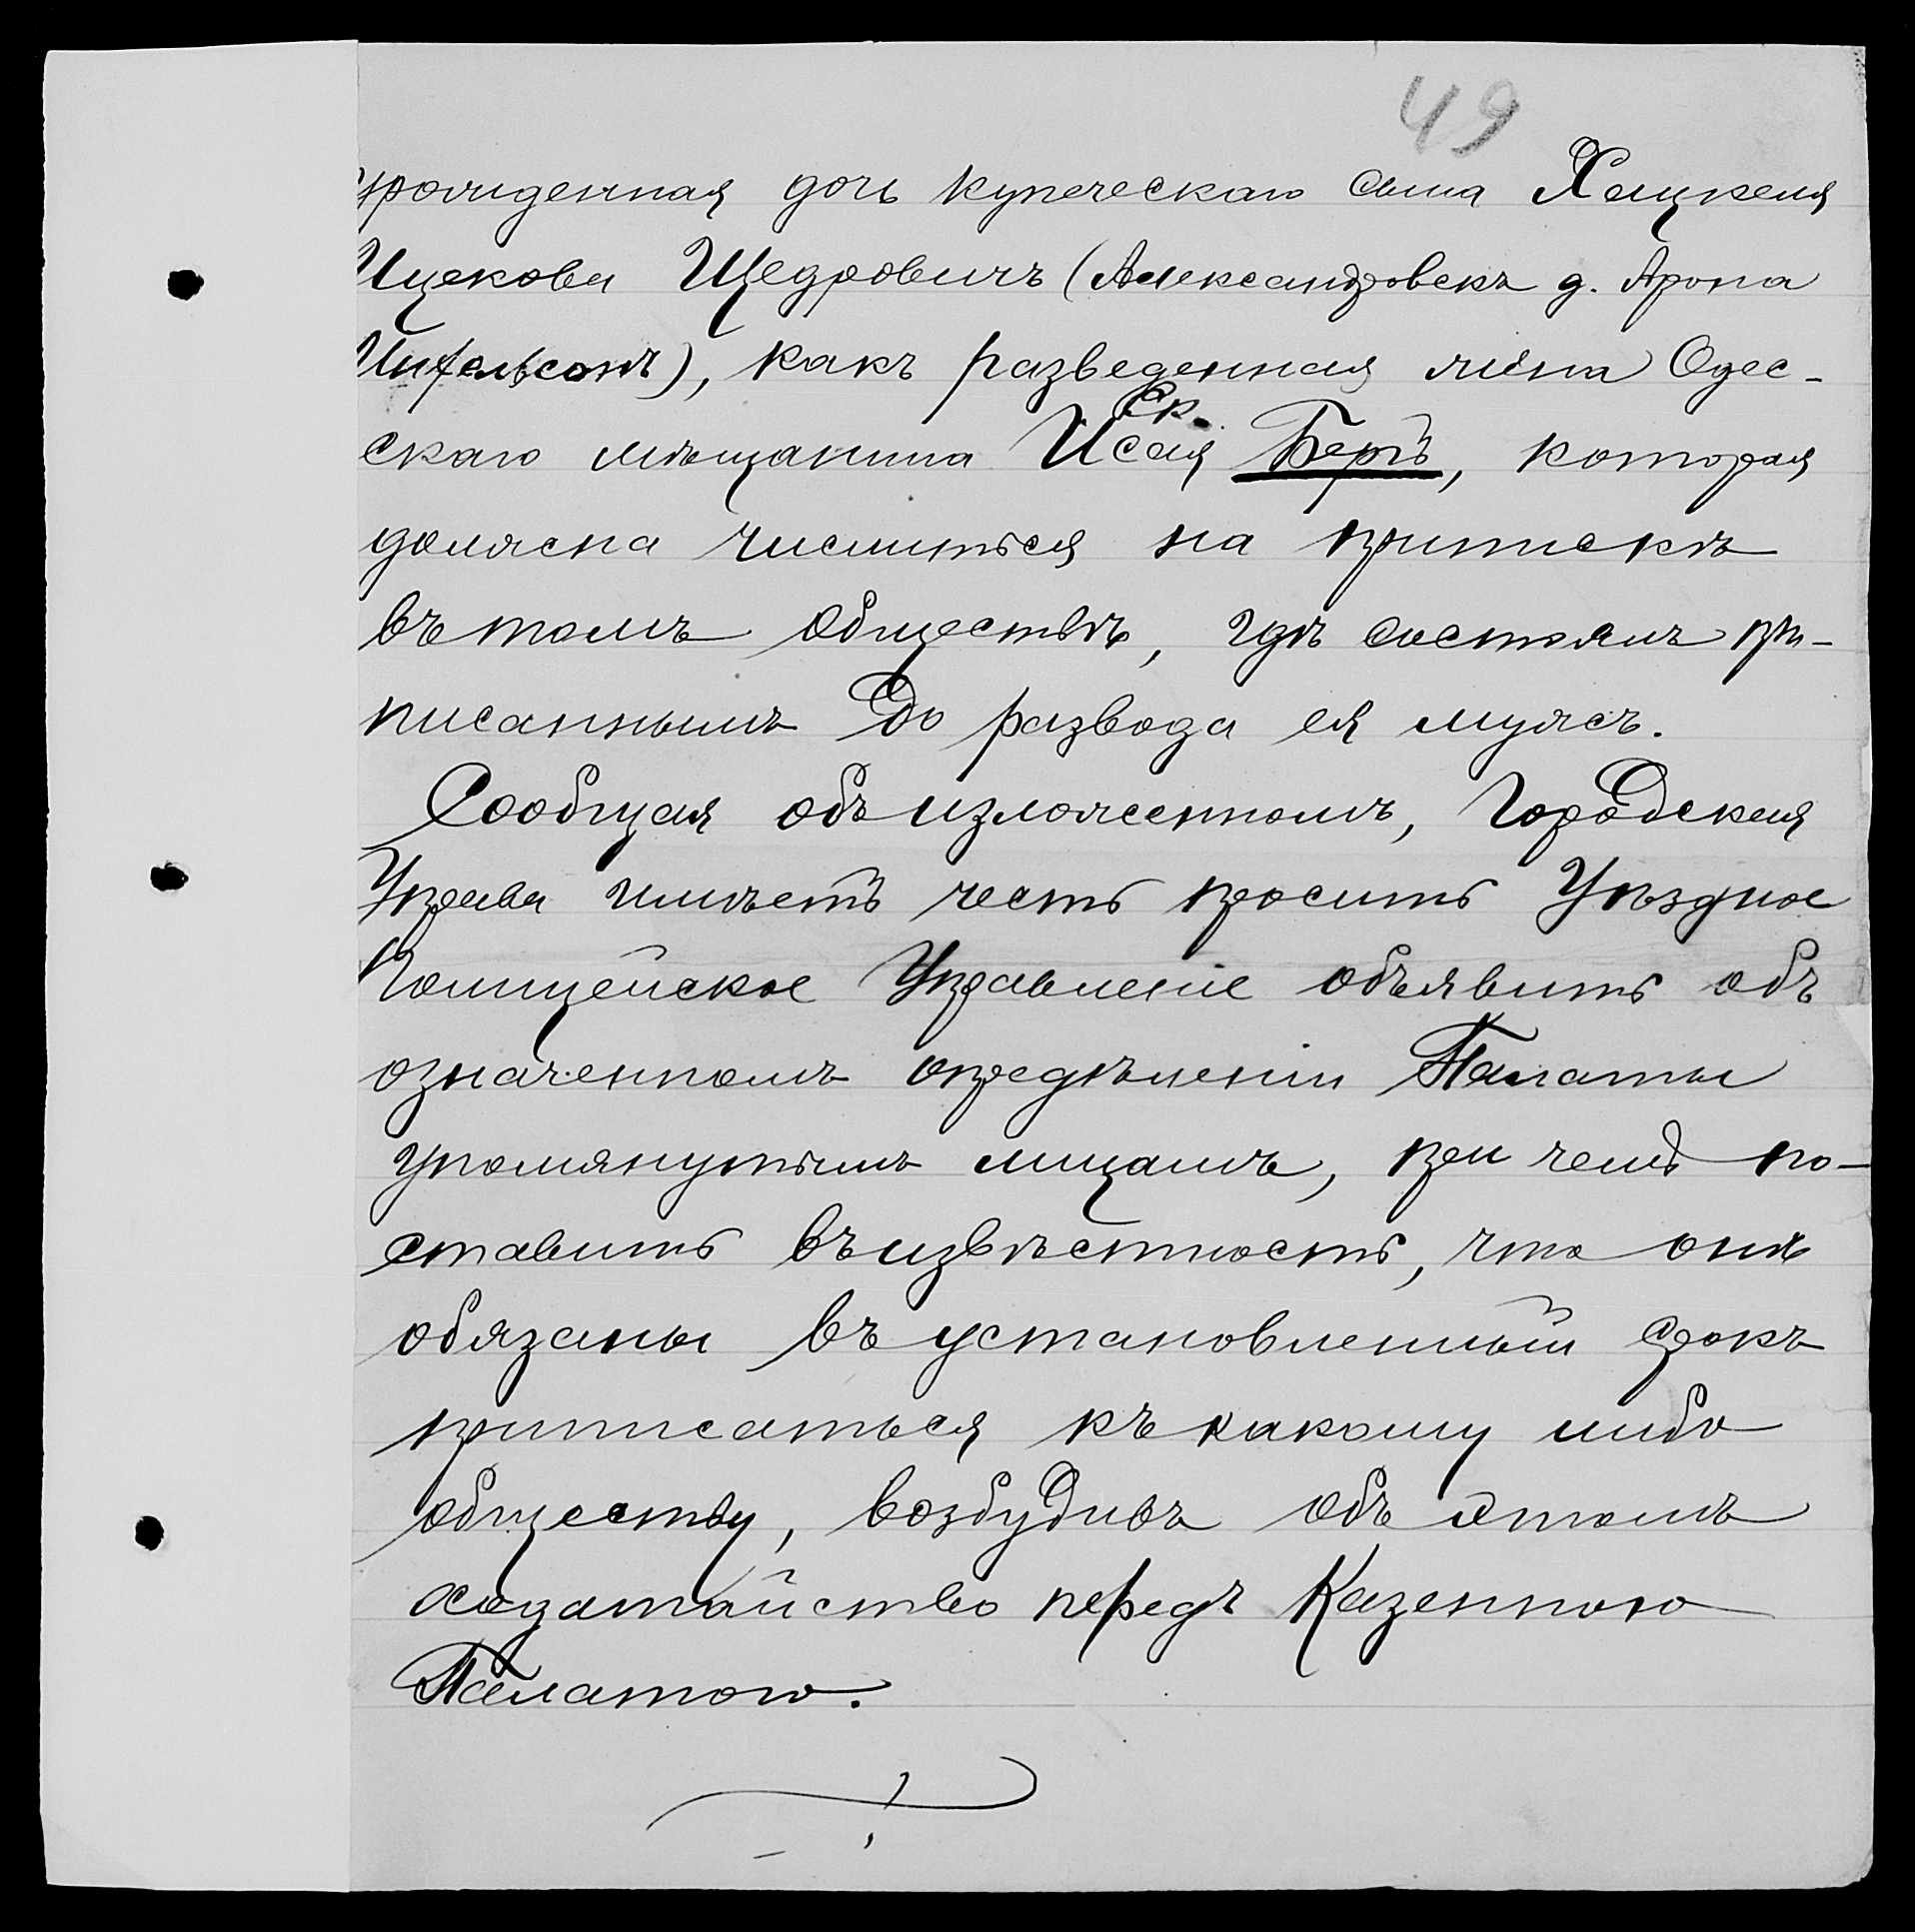 49
урожденная дочь купеческаго сына Хацкеля
Ицекова Щедровичъ (Александровскъ д. Арона
), какъ разведенная жена Одес-
скаго мѣщанина Исая Беръ, которая
должна числиться на припискѣ
въ томъ обществѣ, гдѣ состоялъ при-
писаннымъ до развода ея мужъ.
Сообщая объ изложенномъ, Городская
Управа имѣетъ честь просить Уѣздное
Полицейское Управленіе объявить объ
означенномъ опредѣленіи Палаты
упомянутымъ лицамъ, при чемъ по-
ставить въ извѣстность, что онѣ
обязаны въ установленный срокъ
приписаться къ какому либо
обществу, возбудивъ объ этомъ
ходатайство передъ Казенною
Палатою.